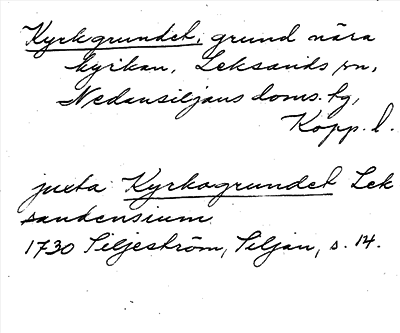 Kyrkgrundet, grund nära
kyrkan, Leksands sn,
Nedansiljans doms. fg,
Kopp. l.
juxta Kyrkogrundet Lek
sandensium
1730 Siljeström, Siljan, s. 14.